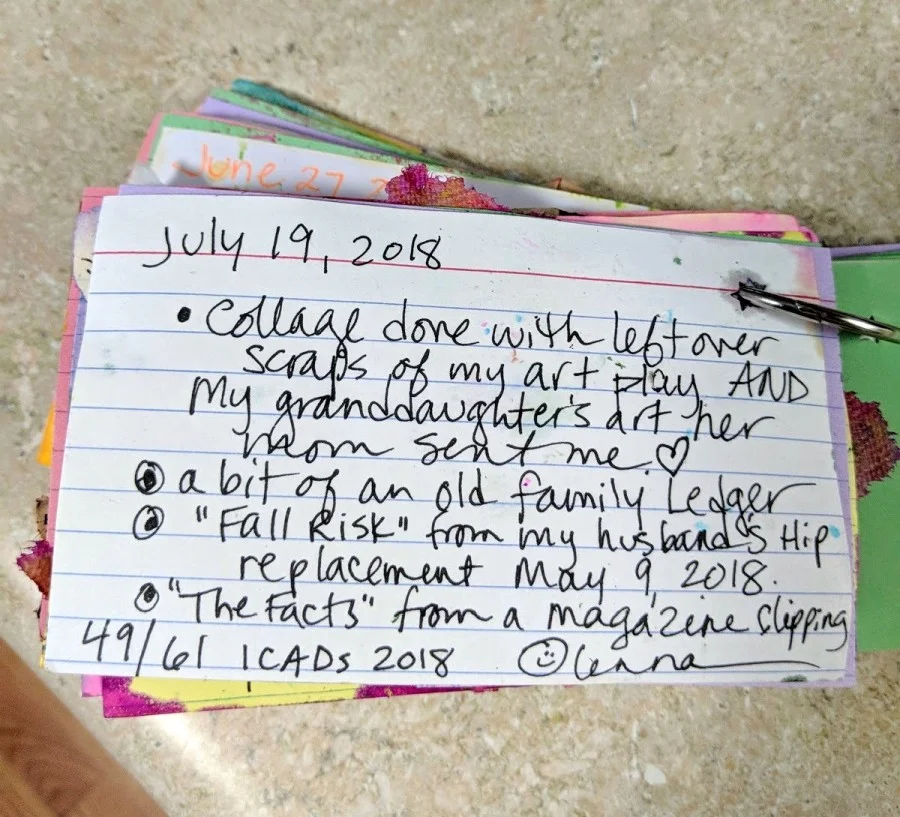 June 27, 2
July 19, 2018
• Collage done with leftover
scraps of my art play AND
My granddaughter's art her
mom sent me. ♡
a bit of an old family Ledger
"Fall Risk" from my husband's Hip
replacement May 9, 2018.
"The Facts" from a magazine Clipping
49/61 ICADs 2018